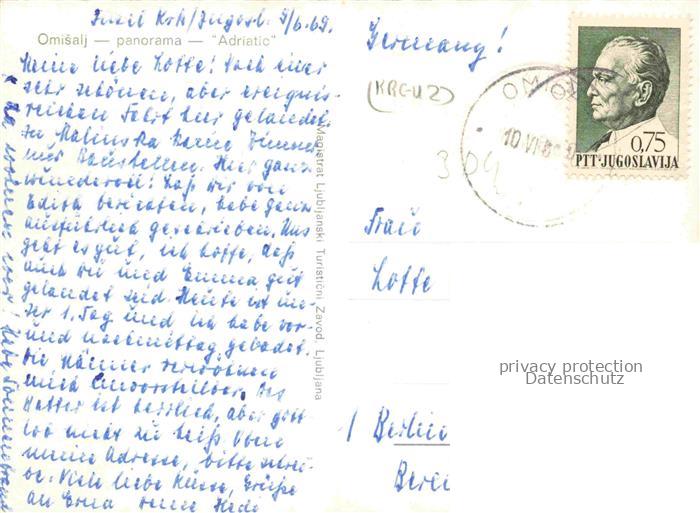 Insel Krk/Jugosl. 9/6.69.
Omišalj — panorama — "Adriatic"
Meine liebe Lotte! Nach einer
sehr schönen, aber ereignis-
reichen Fahrt hier gelandet.
In Malinska keine Zimmer
nur Baustellen. Hier ganz
wundervoll! Daß wir von
Edith berichten, habe ganz
ausführlich geschrieben. Uns
geht es gut, ich hoffe, daß
auch Du und Emma gut
gelandet seid. Heute ist un-
ser 1. Tag und ich habe vor-
und nachmittag gebadet.
Die Männer verwöhnen
mich
Das
Wetter ist herrlich, aber gott-
lob nicht zu heiß. Oben
meine Adresse, bitte schrei-
be. Viele liebe Küsse, Grüße
an Erna Deine Hedi
Magistrat Ljubljanski Turistični Zavod, Ljubljana
Germany!
(KRCU2)
304
OMIŠ
10 VI 69
0,75
PTT·JUGOSLAVIJA
Frau
Lotte
1 Berlin
Berli
privacy protection
Datenschutz